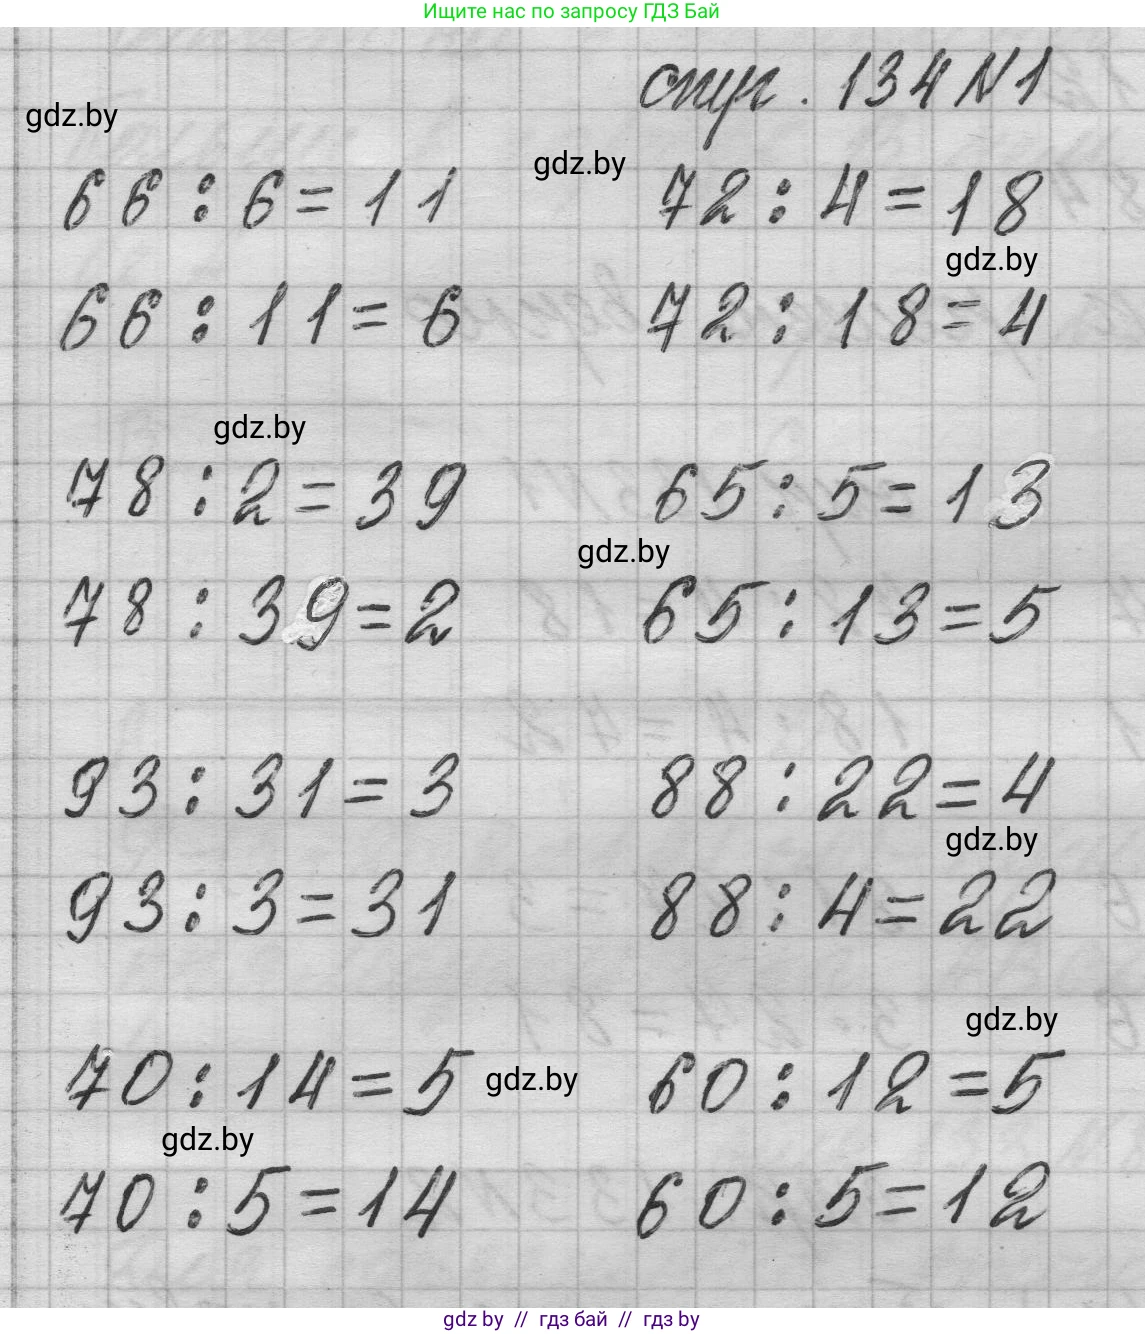 Ищите нас по запросу ГДЗ Бай
стр. 134 N1
gdz.by
gdz.by
66 : 6 = 11 72 : 4 = 18
gdz.by
66 : 11 = 6 72 : 18 = 4
gdz.by
78 : 2 = 39 65 : 5 = 13
gdz.by
78 : 39 = 2 65 : 13 = 5
93 : 31 = 3 88 : 22 = 4
gdz.by
93 : 3 = 31 88 : 4 = 22
gdz.by
70 : 14 = 5 gdz.by 60 : 12 = 5
gdz.by
70 : 5 = 14 60 : 5 = 12
gdz by // гдз бай // гдз by